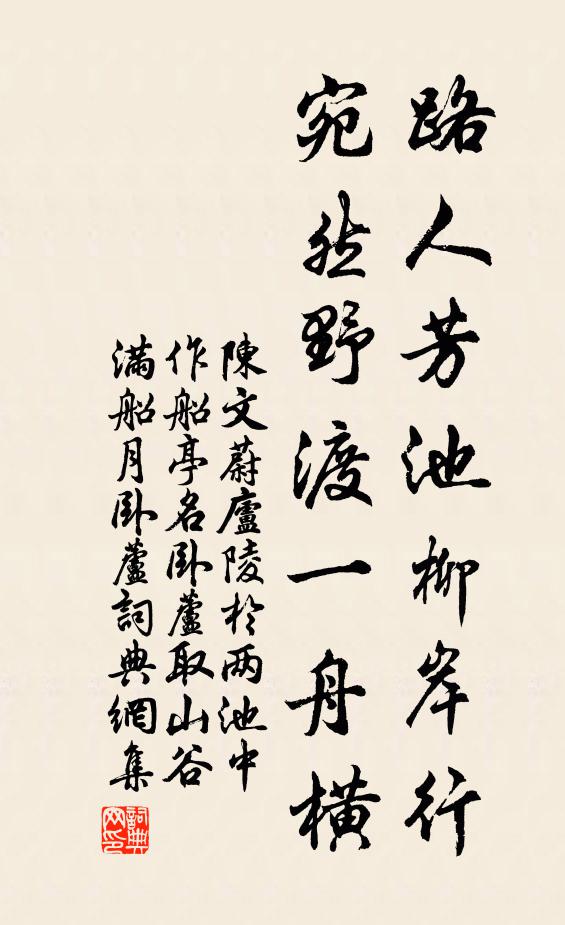 路人芳池柳岸行
宛然野渡一舟橫
陳文蔚廬陵於两池中
作船亭名卧蘆取山谷
滿船月卧蘆詞典網集
詞典
网印